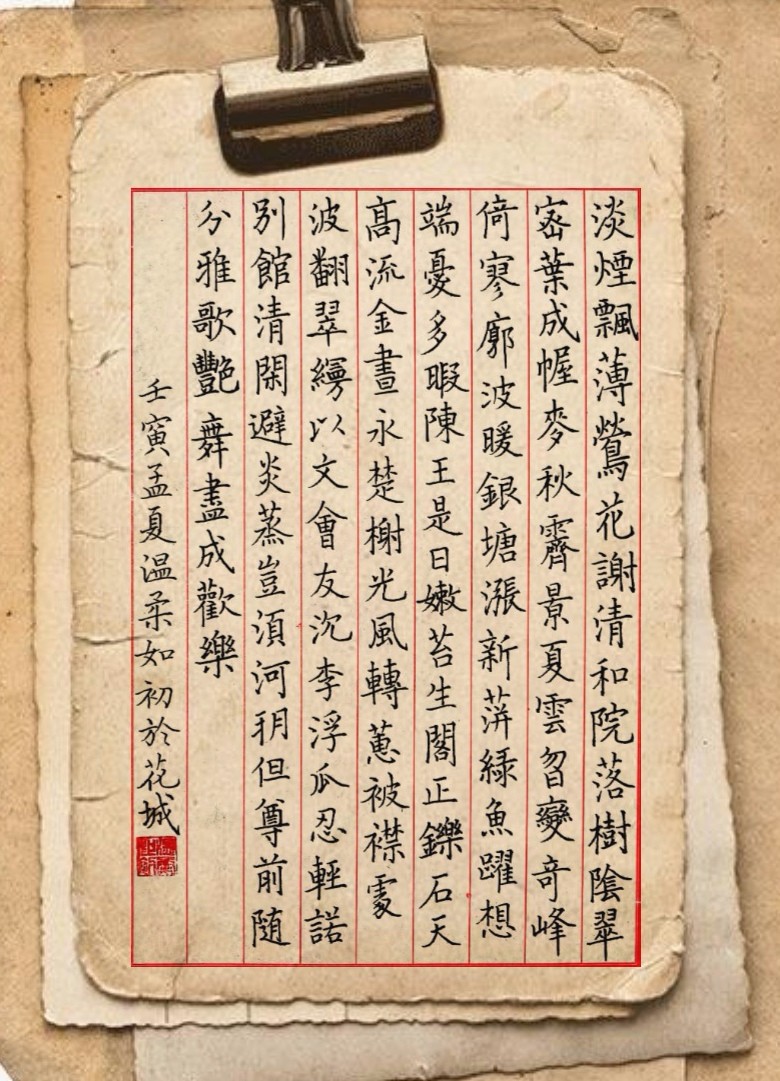 淡煙飄薄鶯花謝清和院落樹陰翠
密葉成幄麥秋霽景夏雲曶變奇峰
倚寥廓波暖銀塘漲新萍綠魚躍想
端憂多暇陳王是日嫩苔生閣正鑠石天
高流金晝永楚榭光風轉蕙被襟處
波翻翠縵以文會友沉李浮瓜忍輕諾
別館清閑避炎蒸豈須河玥但尊前随
分雅歌艷舞盡成歡樂
壬寅孟夏温柔如初於花城